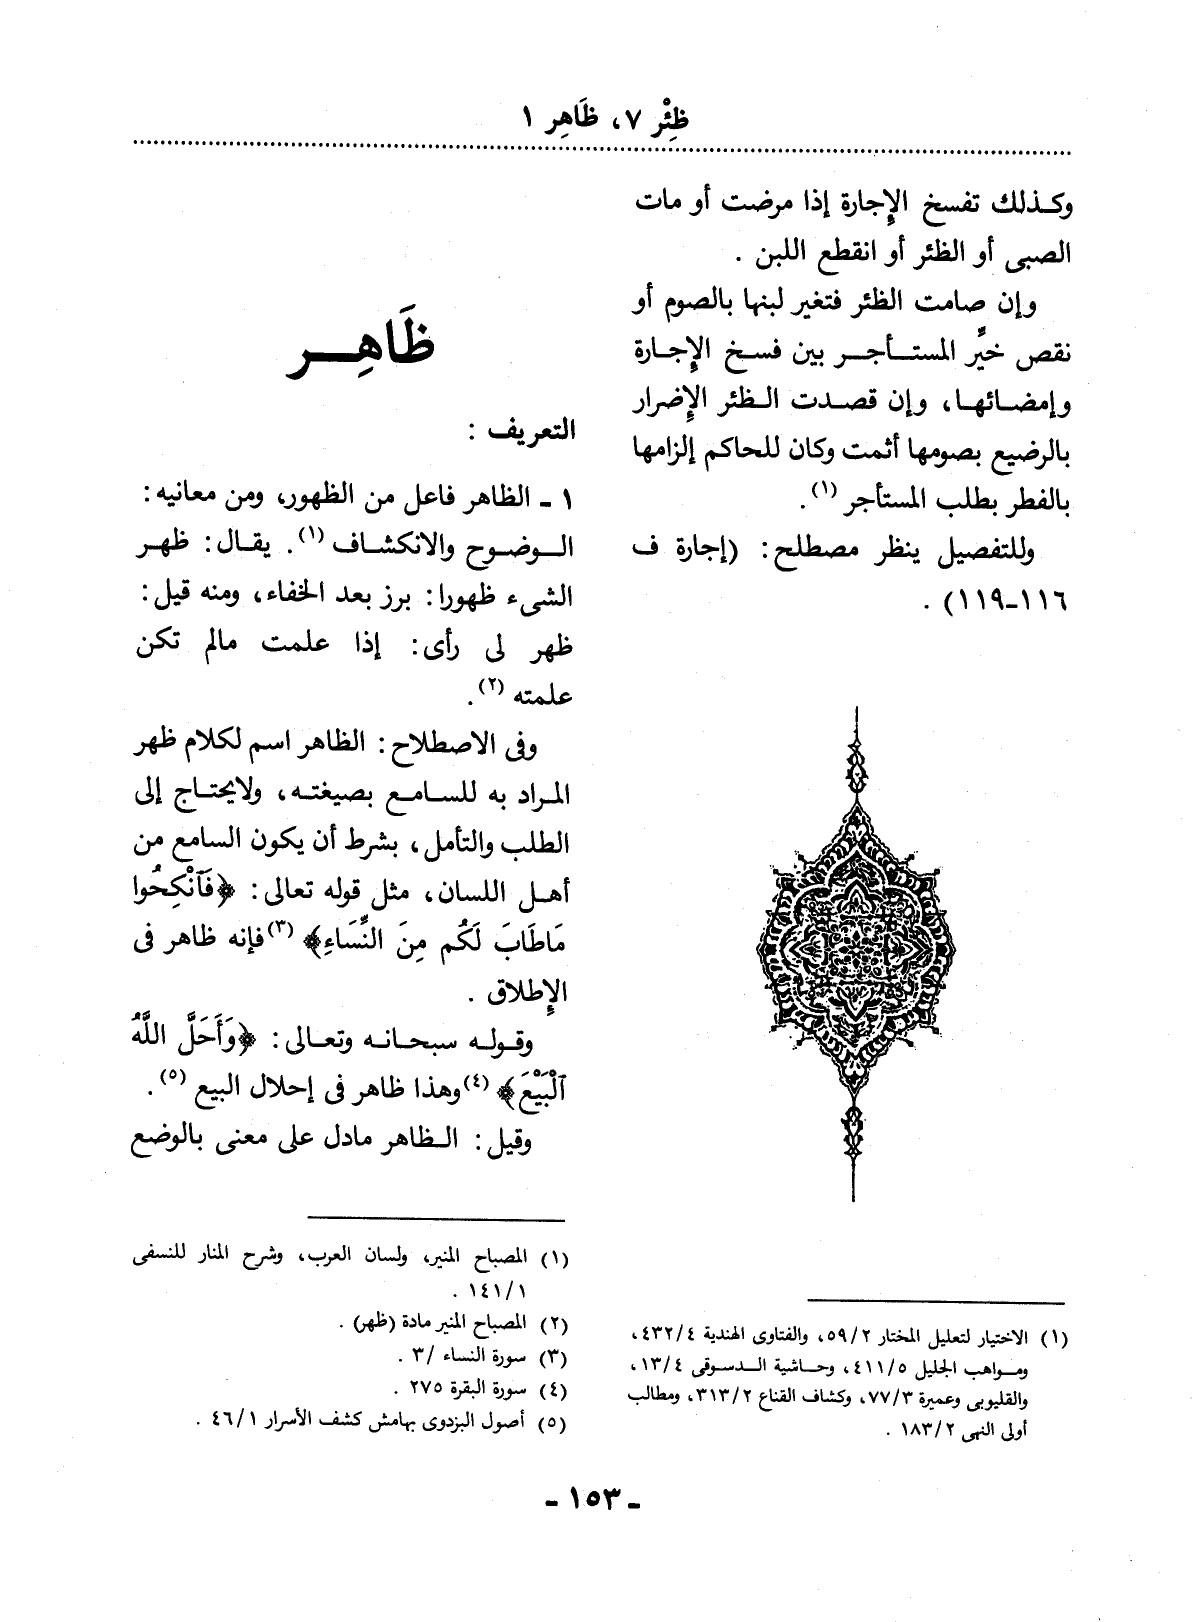 ظِئْر ٧، ظَاهِر ١
وكـذلك تفسخ الإِجارة إذا مرضت أو مات
الصبى أو الظئر أو انقطع اللبن .
وإن صامت الظئر فتغير لبنها بالصوم أو
نقص خيِّر المستـأجـر بين فسـخ الإِجـارة
وإمضـائهـا، وإن قصـدت الـظئر الإِضرار
بالرضيع بصومها أثمت وكان للحاكم إلزامها
بالفطر بطلب المستأجر (١).
وللتفصيل ينظر مصطلح: (إجارة ف
١١٦-١١٩) .
(١) الاختيار لتعليل المختار ٥٩/٢، والفتاوى الهندية ٤٣٢/٤،
ومـواهب الجليل ٤١١/٥، وحـاشية الـدسـوقى ١٣/٤،
والقليوبى وعميرة ٧٧/٣، وكشاف القناع ٣١٣/٢، ومطالب
أولى النهى ١٨٣/٢ .
ظَاهِـر
التعريف :
١ ـ الظاهر فاعل من الظهور، ومن معانيه:
الـوضـوح والانكشـاف (١). يقـال: ظهـر
الشىء ظهورا: برز بعد الخفاء، ومنه قيل:
ظهر لى رأى: إذا علمت مالم تكن
علمته (٢).
وفى الاصطلاح: الظاهر اسم لكلام ظهر
المـراد به للسـامـع بصيغتـه، ولايحتـاج إلى
الطلب والتأمل، بشرط أن يكون السامع من
أهـل اللسان، مثل قوله تعالى: ﴿فَٱنْكِحُوا
مَاطَابَ لَكُم مِنَ النِّسَاءِ﴾ (٣)فإنه ظاهر فى
الإِطلاق .
وقـولـه سبحـانـه وتعـالى: ﴿وَأَحَلَّ اللَّهُ
ٱلْبَيْعَ﴾ (٤)وهذا ظاهر فى إحلال البيع (٥).
وقيل: الـظاهر مادل على معنى بالوضع
(١) المصباح المنير، ولسان العرب، وشرح المنار للنسفى
١٤١/١ .
(٢) المصباح المنير مادة (ظهر) .
(٣) سورة النساء /٣ .
(٤) سورة البقرة ٢٧٥ .
(٥) أصول البزدوى بهامش كشف الأسرار ٤٦/١ .
- ١٥٣ -